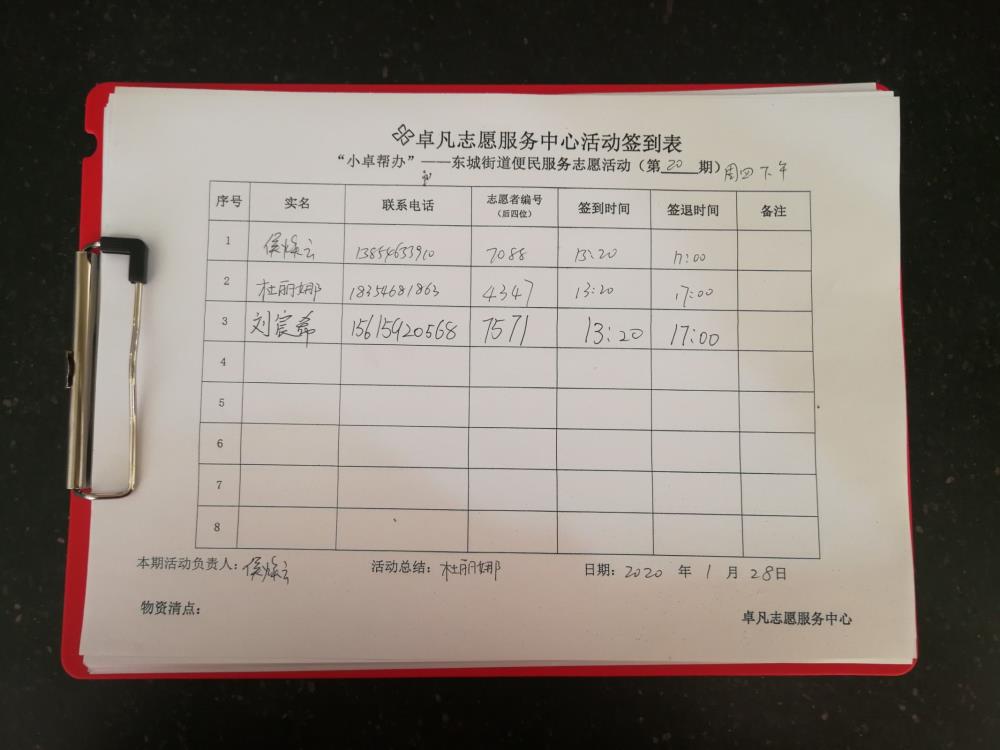 卓凡志愿服务中心活动签到表
“小卓帮办”——东城街道便民服务志愿活动（第20期）周四下午
序号 实名 联系电话 志愿者编号（后四位） 签到时间 签退时间 备注
1 侯焕云 13854633910 7088 13:20 17:00
2 杜丽娜 18354681863 4347 13:20 17:00
3 刘宸希 15615920568 7571 13:20 17:00
4
5
6
7
8
本期活动负责人：侯焕云 活动总结：杜丽娜 日期：2020 年 1 月 28日
物资清点： 卓凡志愿服务中心